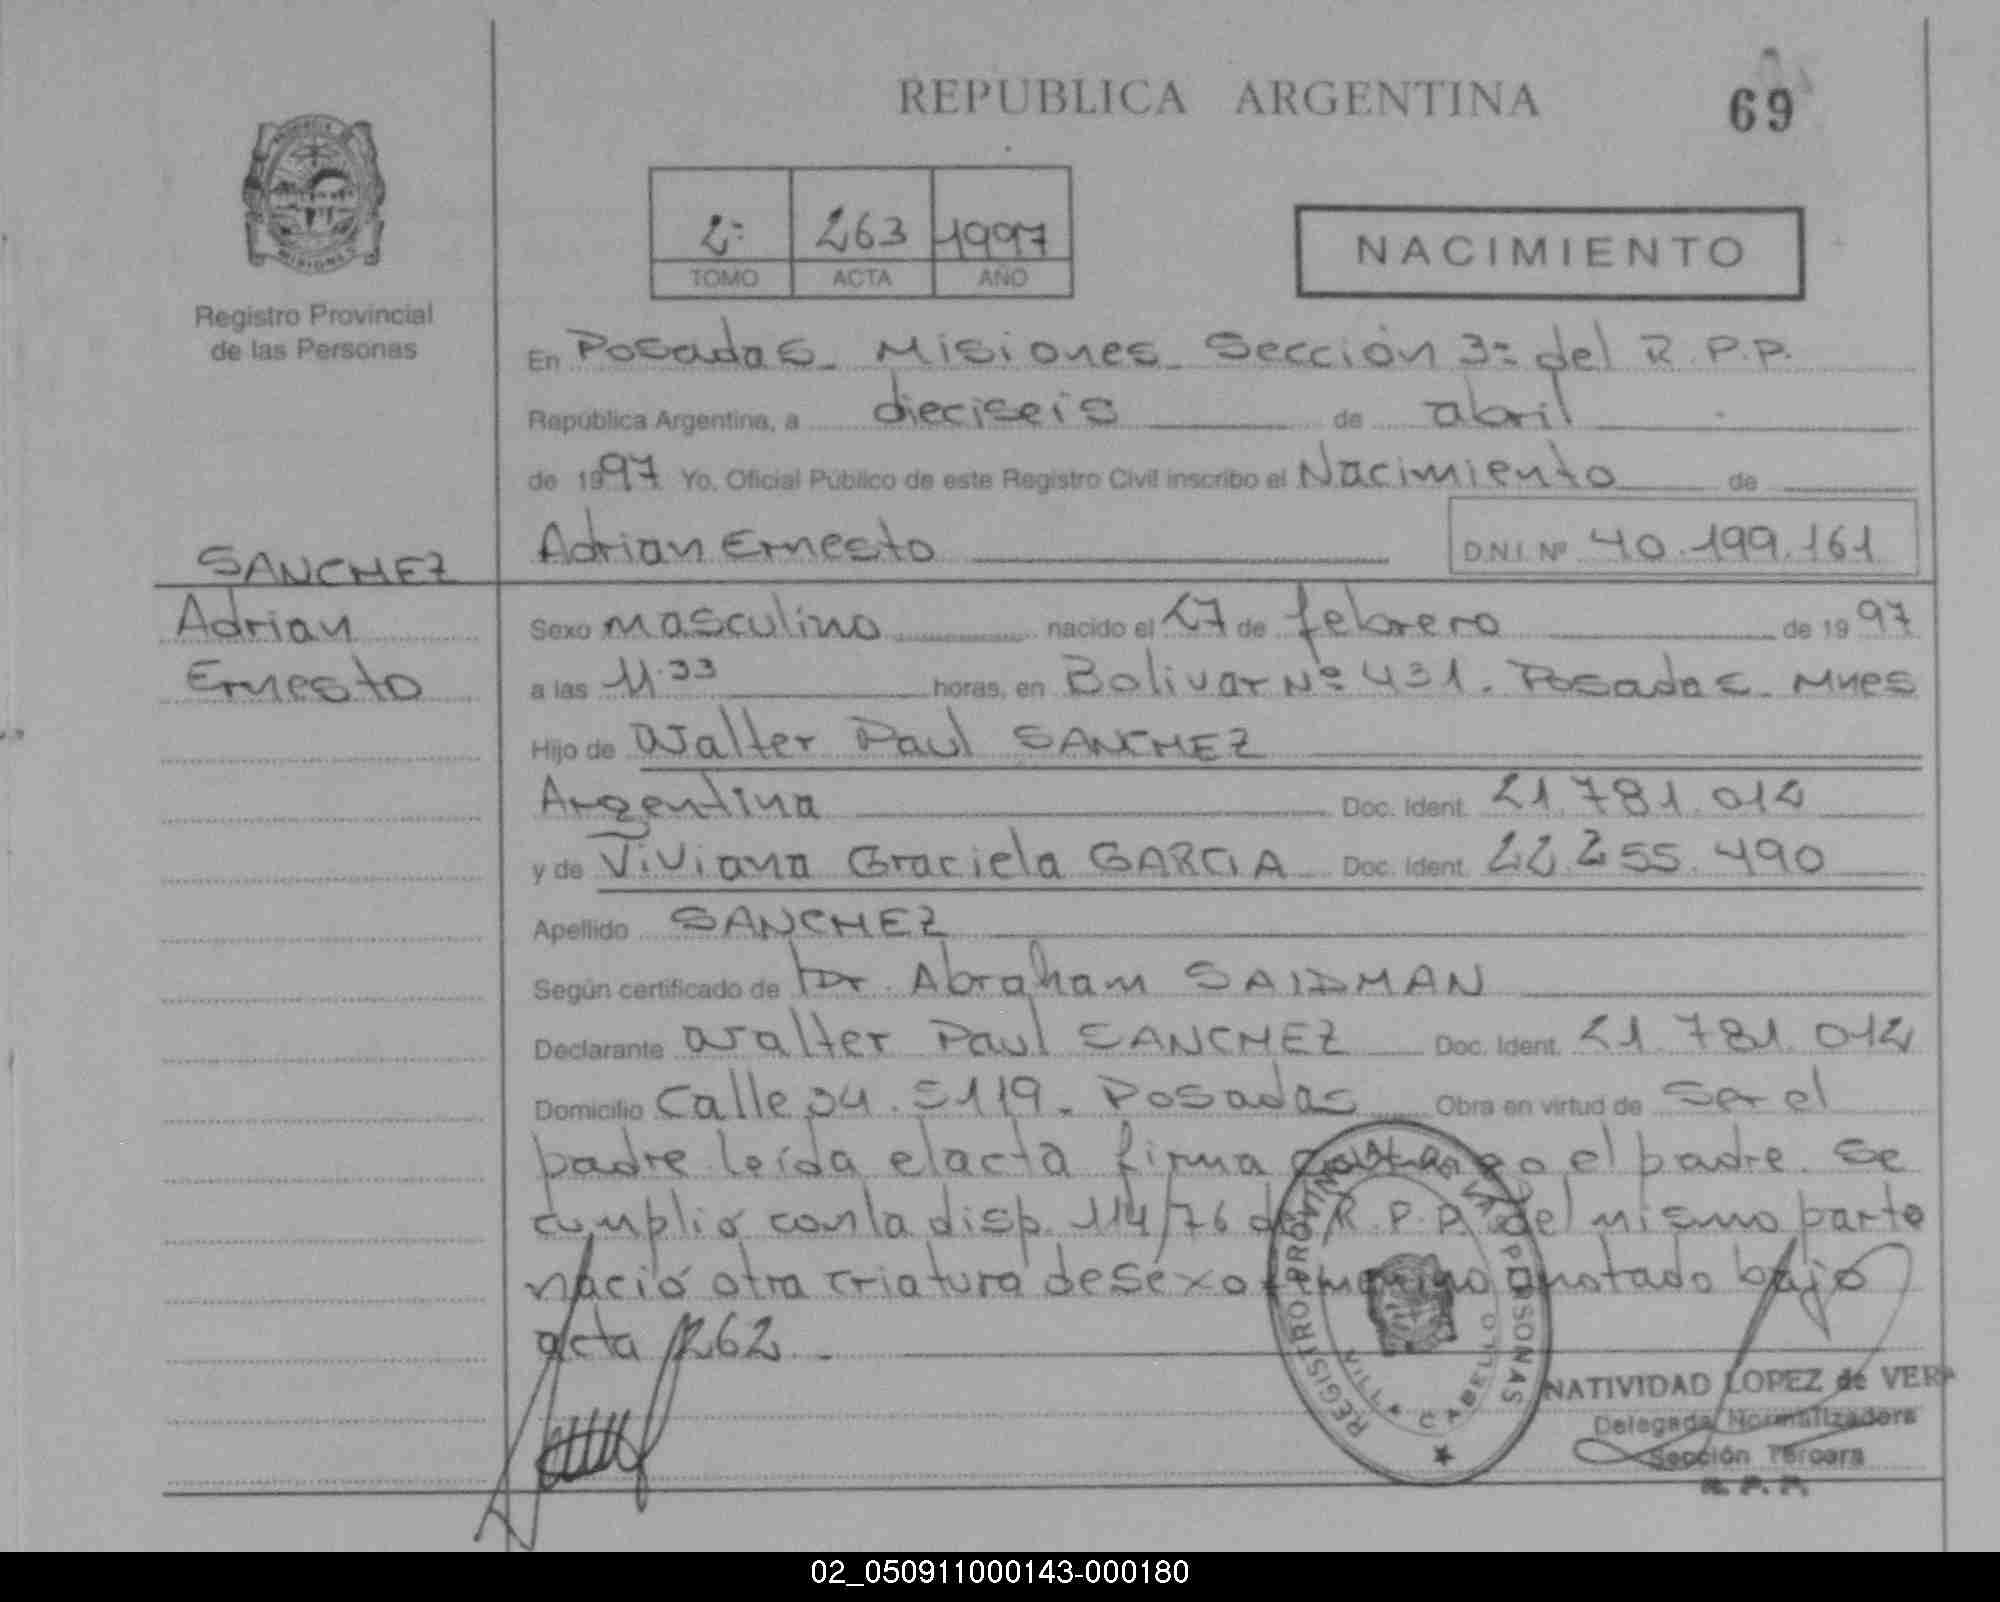 REPUBLICA ARGENTINA
69
2º 263 1997
TOMO ACTA AÑO
NACIMIENTO
Registro Provincial
de las Personas
En Posadas - Misiones - Sección 3º del R.P.P.
República Argentina, a dieciseis de abril
de 1997 Yo, Oficial Público de este Registro Civil inscribo el Nacimiento de
Adrian Ernesto D.N.I. Nº 40.199.161
SANCHEZ
Adrian
Ernesto
Sexo masculino nacido el 27 de febrero de 1997
a las 11.33 horas, en Bolivar Nº 431. Posadas - Mnes
Hijo de Walter Paul SANCHEZ
Argentina Doc. Ident. 21.781.012
y de Viviana Graciela GARCIA Doc. Ident. 22.255.490
Apellido SANCHEZ
Según certificado de Dr. Abraham SAIDMAN
Declarante Walter Paul SANCHEZ Doc. Ident. 21.781.012
Domicilio Calle 34. 5119. Posadas Obra en virtud de ser el
padre leída el acta firma el padre. Se
cumplió con la disp. 114/76 del R.P.P. del mismo parto
nació otra criatura de sexo anotado bajo
acta 262.-
REGISTRO PROVINCIAL DE LAS PERSONAS
VILLA CABELLO
NATIVIDAD LOPEZ de VERA
Delegada Normalizadora
Sección Tercera
R. P. P.
02_050911000143-000180